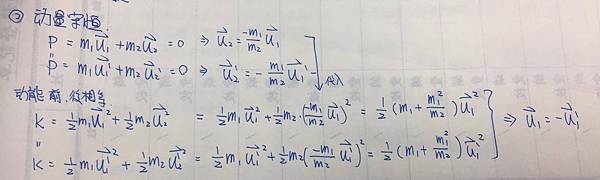 ② 动量守恆
P = m₁u⃗₁ + m₂u⃗₂ = 0 ⇒ u⃗₂ = -m₁/m₂ u⃗₁
"
P = m₁u⃗₁' + m₂u⃗₂' = 0 ⇒ u⃗₂' = -m₁/m₂ u⃗₁' 代入
动能前、後相等
K = ½m₁u⃗₁² + ½m₂u⃗₂² = ½m₁u⃗₁² + ½m₂·(-m₁/m₂ u⃗₁)² = ½(m₁ + m₁²/m₂)u⃗₁²
" ⇒ u⃗₁ = -u⃗₁'
K = ½m₁u⃗₁'² + ½m₂u⃗₂'² = ½m₁u⃗₁'² + ½m₂(-m₁/m₂ u⃗₁')² = ½(m₁ + m₁²/m₂)u⃗₁'²